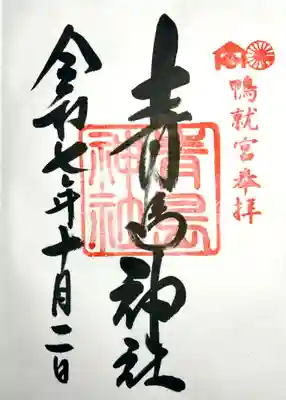 鴨就宮奉拝
青島神社
青島神社
令和七年十月二日